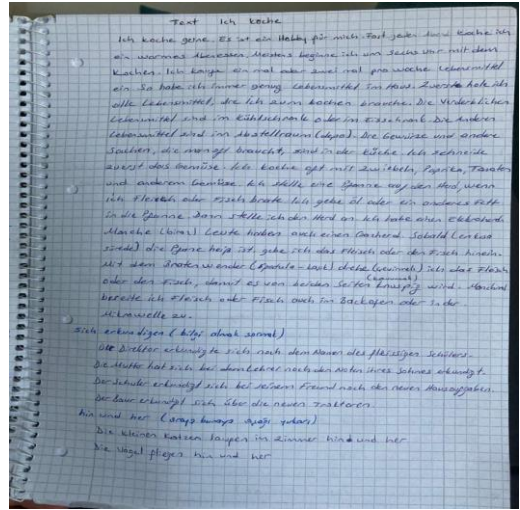 Text Ich koche
Ich koche gerne. Es ist ein Hobby für mich. Fast jeden koche ich
ein warmes Abendessen. Meistens beginne ich um sechs Uhr mit dem
kochen. Ich kaufe ein mal oder zwei mal pro woche Lebensmittel
ein. So habe ich immer genug Lebensmittel im Haus. Zuerst hole ich
alle Lebensmittel, die ich zum kochen brauche. Die Verderblichen
Lebensmittel sind im Kühlschrank oder im Eisschrank. Die anderen
Lebensmittel sind im Abstellraum (depo). Die Gewürze und andere
Sachen, die man oft braucht, sind in der Küche. Ich schneide
zuerst das Gemüse. Ich koche oft mit Zwiebeln, Paprika, Tomaten
und anderem Gemüse. Ich stelle eine Pfanne auf den Herd, wenn
ich Fleisch oder Fisch brate. Ich gebe öl oder ein anderes Fett
in die Pfanne. Dann stelle ich den Herd an. Ich habe einen Elektroherd.
Manche Leute haben auch einen Gasherd. Sobald
die Pfanne heiß ist, gebe ich das Fleisch oder den Fisch hinein.
Mit dem Bratenwender drehe (çevirmek) ich das Fleisch
oder den Fisch, damit es von beiden Seiten knusprig wird. Manchmal
bereite ich Fleisch oder Fisch auch im Backofen oder in der
Mikrowelle zu.
Sich erkundigen (bilgi almak sormak)
Direktor erkundigte sich nach dem Namen des fleissigen Schülers.
Die Mutter hat sich bei dem Lehrer nach den Noten ihres Sohnes erkundigt.
Der Schüler erkundigt sich bei seinem Freund nach den neuen Hausaufgaben.
Der Bauer erkundigt sich über die neuen Traktoren.
hin und her (oraya buraya aşağı yukarı)
Die kleinen Katzen laufen im Zimmer hin und her
Die Vögel fliegen hin und her